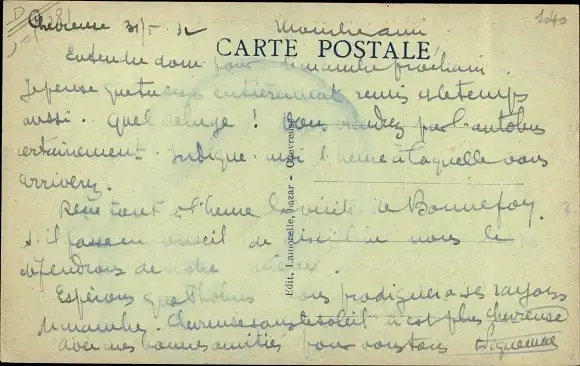 Chevreuse 31/5 32 Mon cher ami
1240
CARTE POSTALE
Entendu donc pour dimanche prochain.
Je pense que tu es entièrement remis et le temps
aussi. Quel déluge ! Vous viendrez par l'autobus
certainement. Indique-moi l'heure à laquelle vous
arriverez.
Reçu tout à l'heure la visite de Bonnefoy.
S'il passe en conseil de discipline nous le
défendrons de notre mieux.
Espérons que Phœbus vous prodiguera ses rayons
dimanche. Chevreuse sans le soleil n'est plus Chevreuse
Avec mes bonnes amitiés pour vous tous
Edit. Lamorelle, bazar - Chevreuse